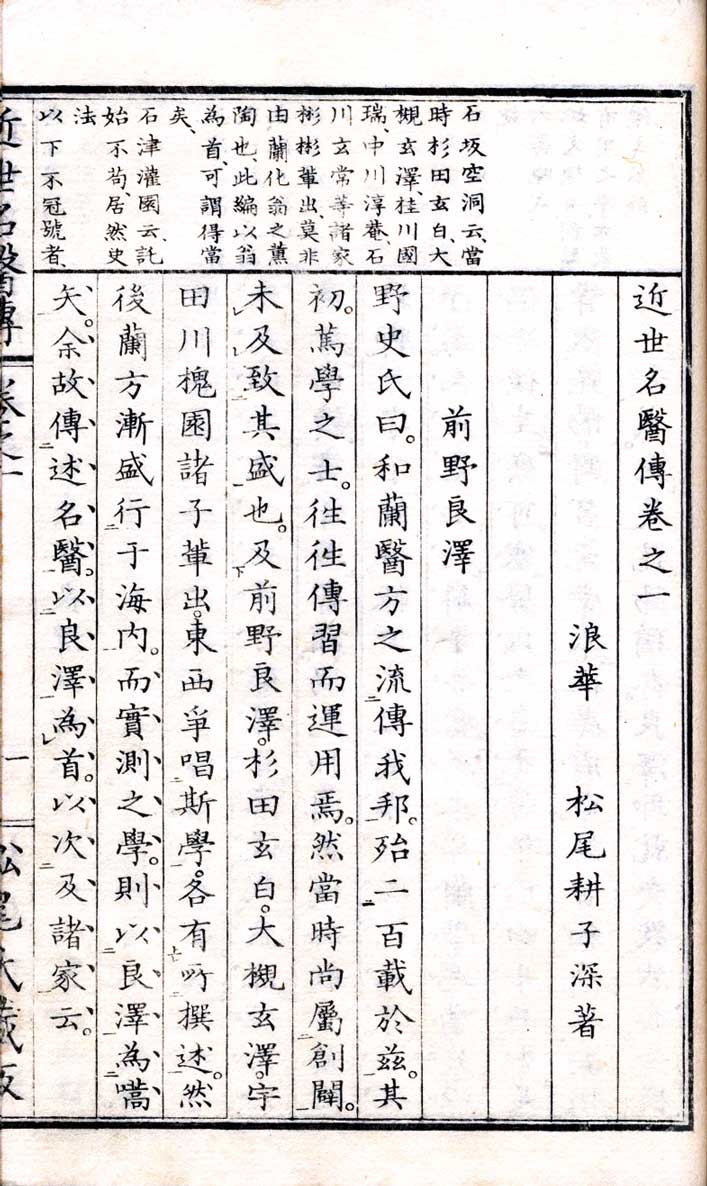 近世名醫傳卷之一
浪華　松尾耕子深著
前野良澤
野史氏曰。和蘭醫方之流傳我邦。殆二百載於茲。其
初。篤學之士。徃徃傳習而運用焉。然當時尚屬創闢。
未及致其盛也。及前野良澤。杉田玄白。大槻玄澤。宇
田川槐園諸子輩出。東西爭唱斯學。各有所撰述。然
後蘭方漸盛行于海內。而實測之學。則以良澤為嚆
矢。余故傳述名醫。以良澤為首。以次及諸家云。
石坂空洞云、當
時杉田玄白、大
槻玄澤、桂川國
瑞、中川淳菴、石
川玄常等諸家
彬彬輩出、莫非
由蘭化翁之薰
陶也、此編以翁
為首、可謂得當
矣、
石津灌園云、託
始不苟、居然史
法
以下不冠號者、
近世名醫傳　卷之一　一　松尾氏藏版